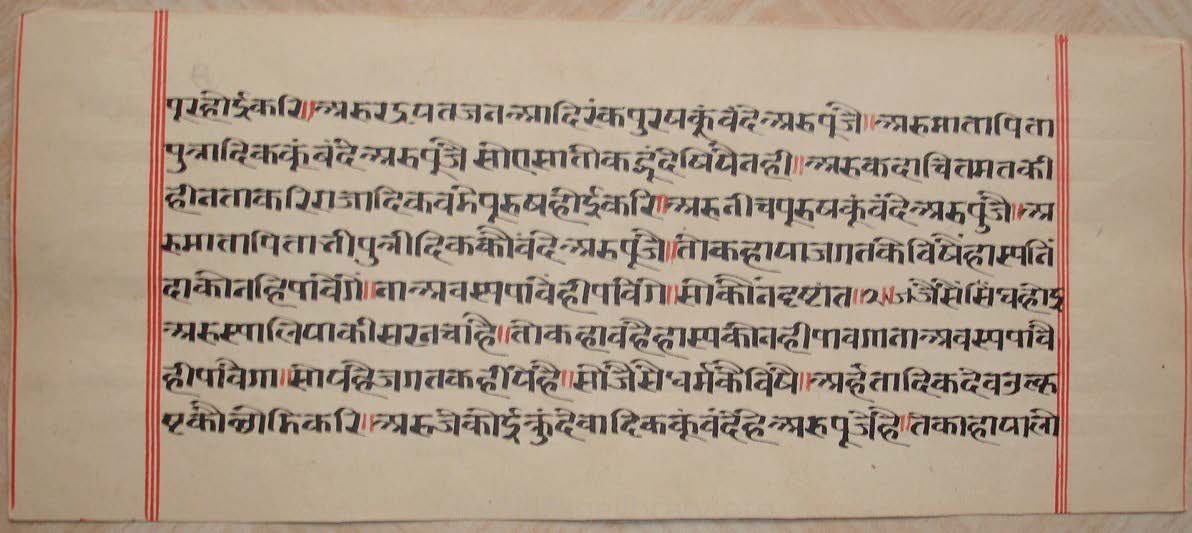 पूरहोईकरि॥अरुरङ्कपतजनआदिरंकपुरषकूंवंदेअरुपूंजै॥अरुमातापिता
पुत्रादिककूंवंदेअरुपूंजै सोएसातीकहूंदेषिषैनही॥अरुकदाचितमतकी
हीनताकरिराजादिकवमेपूरुषहोईकरि॥अरुनीचपूरुषकूंवंदेअरुपूंजै॥अ
रुमातापितास्त्रीपुत्रीदिककौवंदेअरुपूंजै॥तोकहापाजगतकैविषैंहास्पतिं
दाकोनहिंपावैंगे॥ताअवस्पपांवेंहीपविंगे॥सोकौंनदृष्टांत॥२॥जजैसेंसिंघहोइ
अरुस्पालियाकीसरनचांहै॥तोकहावंहैहास्पकोनहीपावगताअवस्पपांवै
हीपांवेगा॥सोपंहैजगतकहींपंहै॥सोजैसैधर्मकैविषै॥अर्हंतादिकदेवउत्क
ष्टकौछोडिकरि॥अरुजेकोईकुंदेवादिककूंवंदेंहेअरुपूजेंहै॥तेकाहापालो